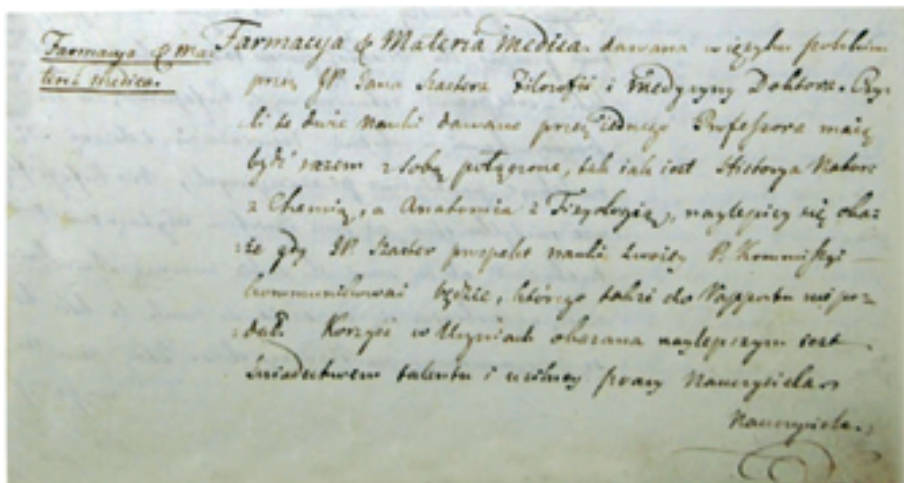 Farmacyja & Ma-
teria medica.
Farmacyja & Materia medica dawana w ięzyku polskim
przez JP. Jana Szastera Filozofii i Medycyny Doktora. Czy-
li te dwie nauki dawane przez iednego Professora maią
bydź razem z sobą połączone, tak iak iest Historya Natur:
z Chemią, a Anatomia z Fizyologią, naylepiey się okaż
że gdy JP. Szaster prospekt nauki swoiey P. Kommissyi
kommunikować będzie, którego także do Rapportu nie po-
dał. Korzyść w Uczniach okazana naylepszym iest
świadectwem talentu i usilney pracy Nauczyciela
Nauczyciela.